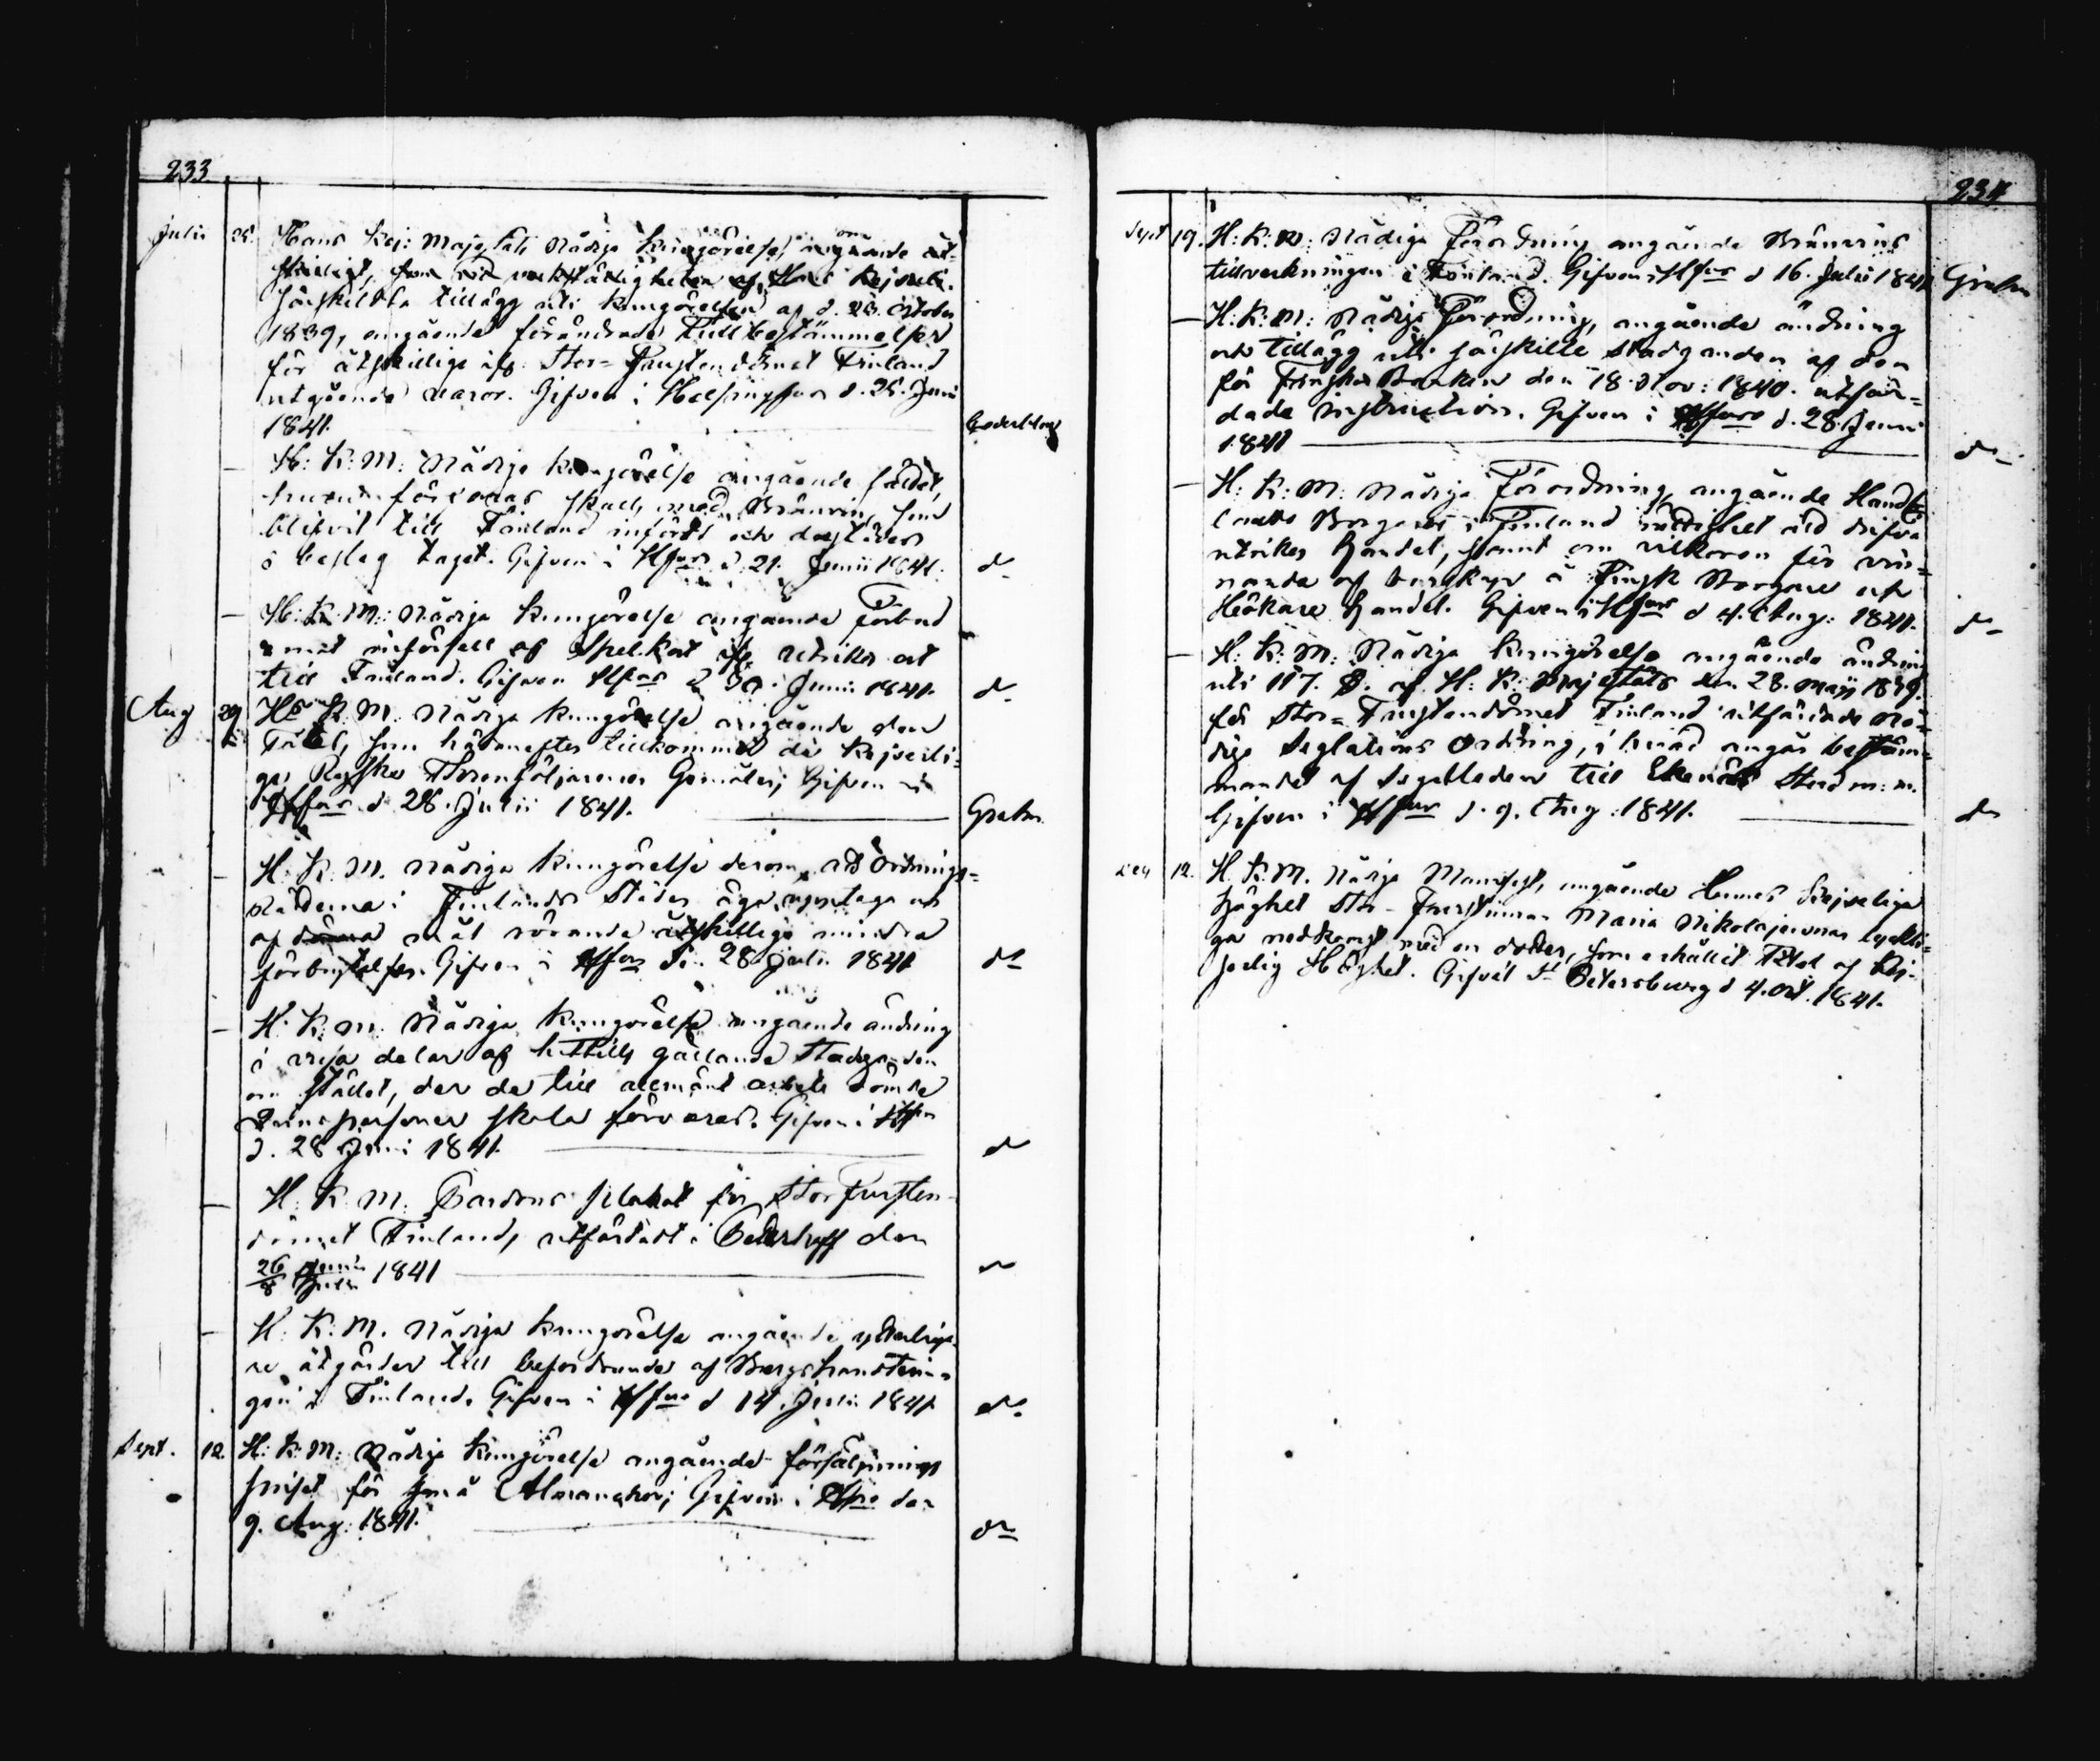 233
Julii 25. Hans Kej: Majestäts Nådiga Kungörelse, om
särskildta tillägg uti kungörelsen af d. 23. October
1839, angående förändrade Tullbestämmelser
för åtskillige ifr. Stor-Furstendömet Finland
utgående varor. Gifven i Helsingfors d. 25. Junii
1841.
H: K: M: Nådiga Kungörelse angående sättet,
huru förfaras skall med Bränvin, som
blifvit till Finland infördt och dertädes
i beslag taget. Gifven i Hfors d. 21. Junii 1841. do
H: K: M: Nådiga Kungörelse angående Förbud
emot införsell af Spelkort ifr. utrikes ort
till Finland. Gifven Hfors d 30 Junii 1841. do
Aug 29 Hs K. M. Nådiga Kungörelse angående den
Titel, som härnnefter tillkommer de Kejserli-
ga Ryska Thronföljarenes Gemåler; Gifven i
Hfors d 28. Julii 1841. Grahn
H. K. M. Nådiga Kungörelse derom, att Ordnings-
Rätterna i Finlands Städer äga upptaga och
afdöma mål rörande åtskillige mindre
förbrytelser. Gifven i Hfors den 28 Julii 1841 do
H. K. M. Nådiga Kungörelse angående ändring
i vissa delar af hittills gällande Stadganden
om stället, der de till allmänt arbete dömde
Qvinspersoner skola förvaras. Gifven i Hfors
d. 28 Junii 1841. do
H. K. M. Pardons plakat för StorFursten-
dömet Finland, utfärdadt i Peterhoff den
26/8 Junii/Julii 1841 do
H. K. M. Nådiga Kungörelse angående ytterliga-
re åtgärder till befordrande af Bergshandterin-
gen i Finland. Gifven i Hfors d 14. Julii 1841 do
Sept. 12. H: K: M: Nådiga Kungörelse angående försäljnings
priset för små Almanachor; Gifven i Hfors den
9. Aug. 1841. do
234
Sept 19. H: K: M: Nådiga Förordning angående Bränvins
tillverkningen i Finland. Gifven i Hfors d 16. Julii 1841 Grahn
H: K: M: Nådiga Förordning, angående ändring
och tillägg uti särskille stadganden af den
för Finska Banken den 18. Nov: 1840. utfär-
dade instruction. Gifven i Hfors d. 28. Junii
1841 do
H: K: M: Nådiga Förordning, angående Hand-
lande Borgares i Finland rättighet att drifva
utrikes handel, samt om vilkoren för vin-
nande af burskap å Finsk Borgare och
Hökare handel. Gifven i Hfors d 4. Aug: 1841. do
H. K: M: Nådiga Kungörelse angående ändring
uti 117. §. af H: K: Majestäts den 28. Maji 1839.
för Stor-Furstendömet Finland utfärdade Nå-
dige Seglations Ordning, i hvad angår bestäm-
mandet af Segelleden till Ekenäs Stad m: m.
Gifven i Hfors d. 9. Aug. 1841. do
12. H. K. M. Nådiga Manifest, angående Hennes Kejserliga
Höghet Stor-Furstinnan Maria Nikolajevnas lyckli-
ga nedkomst med en dotter, som erhållit Titel af Kej-
serlig Höghet. Gifvet St Petersburg d 4. Oct. 1841.